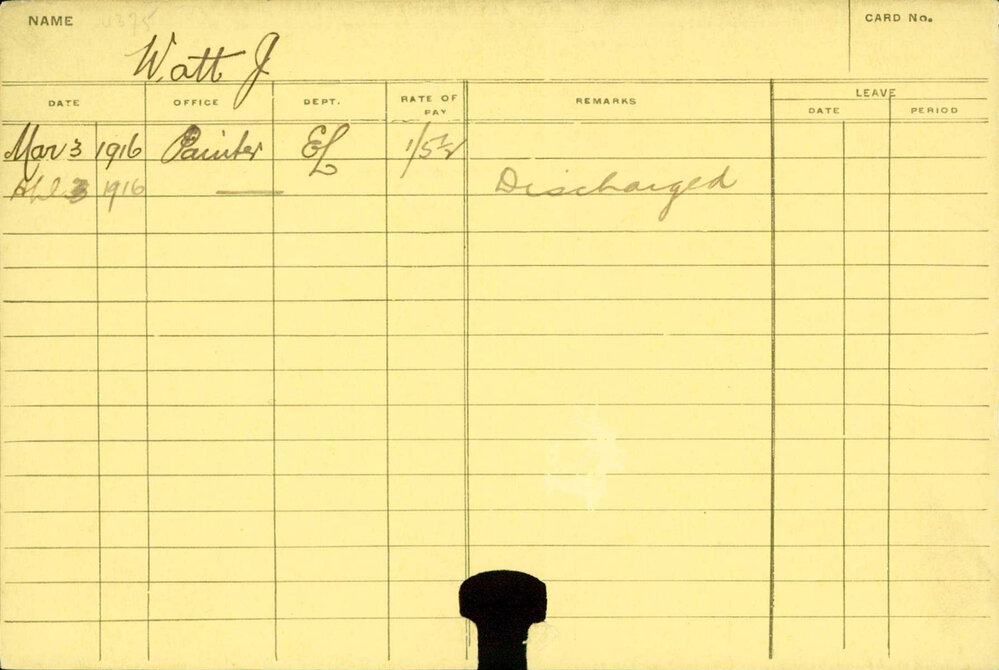 NAME
CARD No.
Watt J
DATE OFFICE DEPT. RATE OF PAY REMARKS LEAVE
DATE PERIOD
Mar 3 1916 Painter EL 1/5½
Apl 3 1916 — Discharged